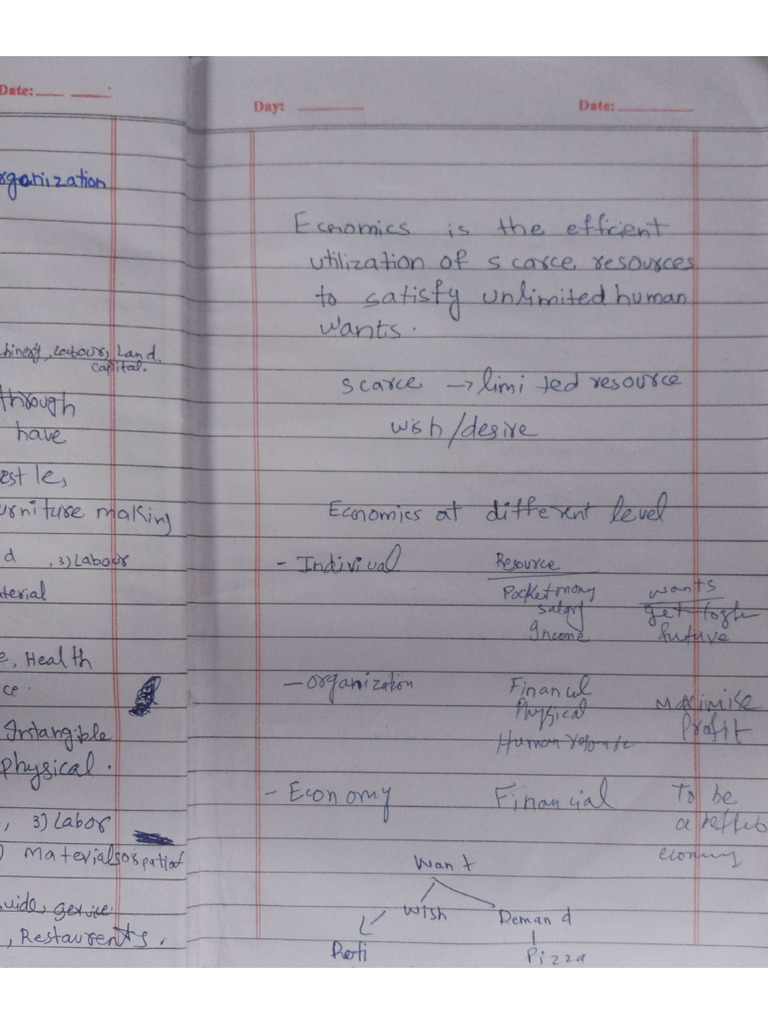 Date:
rganization
hinery, Labour, Land,
capital.
through
have
estle,
urniture making
d , 3) Labour
aterial
e, Health
ce.
Intangible
physical.
, 3) Labor
) Materials or patient
uide, gervice
, Restaurents.
Day: Date:
Economics is the efficient
utilization of scarce resources
to satisfy unlimited human
wants.
scarce → limited resource
wish/desire
Economics at different level
- Indivival Resource
Pocketmony wants
salary
Income future
- Organization Financial
Physical Maximise
Human Profit
- Economy Financial To be
a
economy
Want
Wish Demand
Roti Pizza